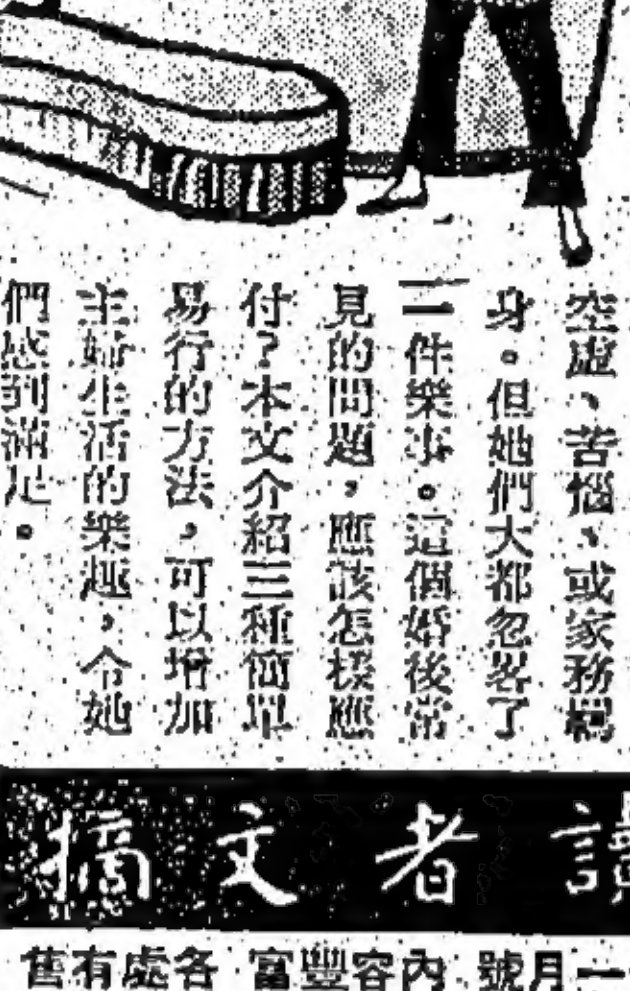 空虛、苦惱、或家務羈
身。但她們大都忽畧了
一件樂事。這個婚後常
見的問題，應該怎樣應
付？本文介紹三種簡單
易行的方法，可以增加
主婦生活的樂趣，令她
們感到滿足。
讀者文摘
一月號 內容豐富 各處有售